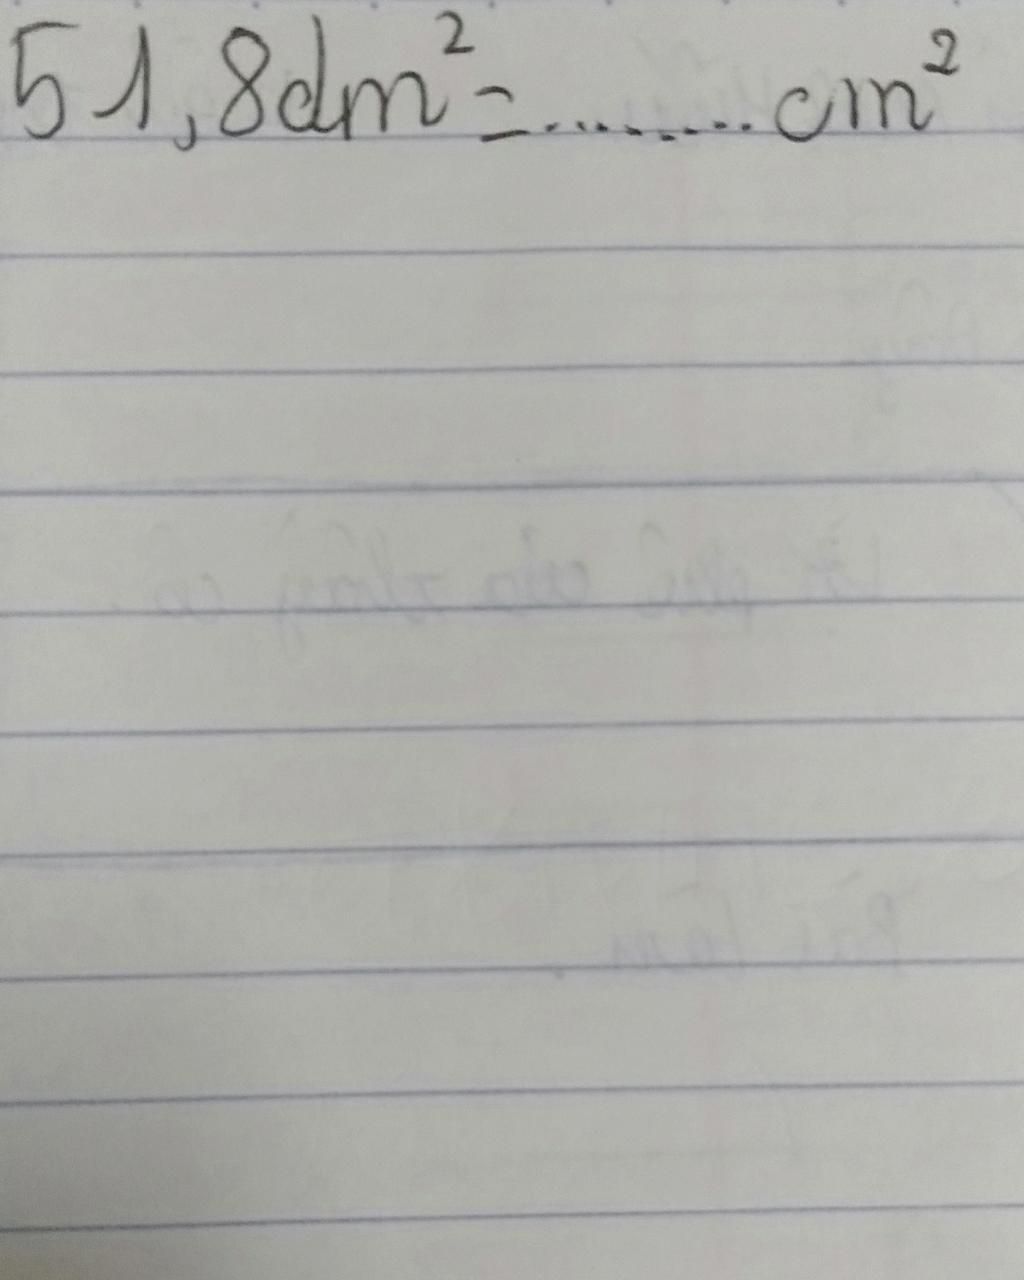 51,8dm²=......... cm²